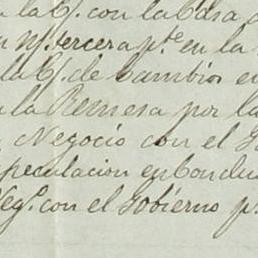 la C/. con la Casa
tercera p.te en la
la C/. de Cambios en
la Remesa por la
Negocio con el
speculacion en Condu
Neg.o con el Gobierno p.